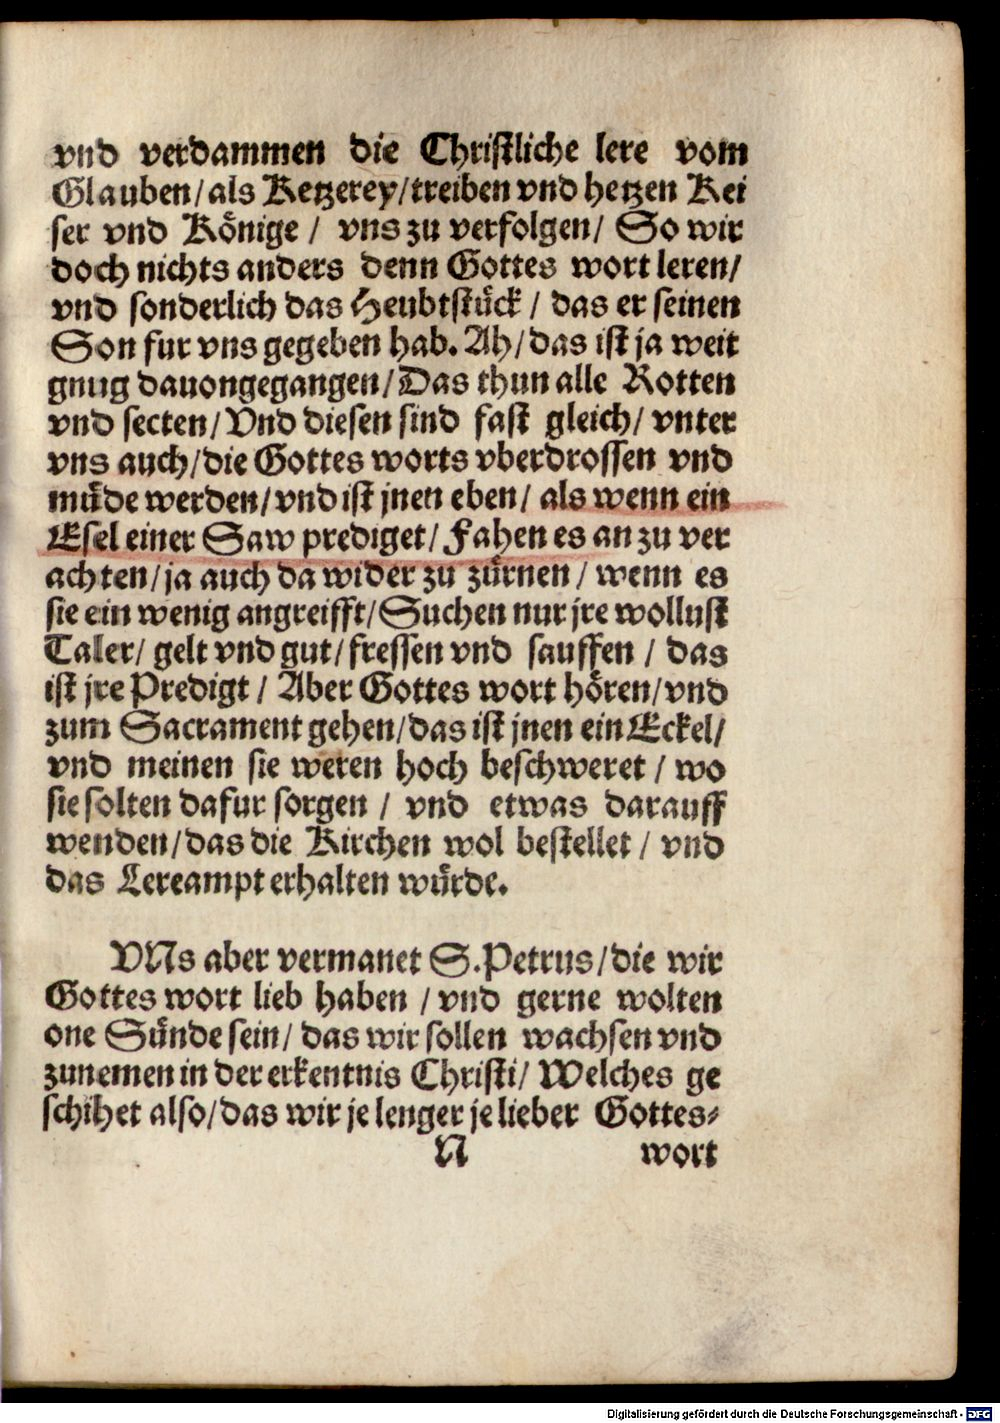 vnd verdammen die Christliche lere vom
Glauben/als Ketzerey/treiben vnd hetzen Kei
ser vnd Könige / vns zu verfolgen/ So wir
doch nichts anders denn Gottes wort leren/
vnd sonderlich das Heubtstück / das er seinen
Son fur vns gegeben hab. Ah/das ist ja weit
gnug dauongegangen/Das thun alle Rotten
vnd secten/Vnd diesen sind fast gleich/ vnter
vns auch/die Gottes worts vberdrossen vnd
müde werden/vnd ist jnen eben/ als wenn ein
Esel einer Saw prediget/ Fahen es an zu ver
achten/ja auch da wider zu zürnen / wenn es
sie ein wenig angreifft/Suchen nur jre wollust
Taler/ gelt vnd gut/fressen vnd sauffen / das
ist jre Predigt / Aber Gottes wort hören/vnd
zum Sacrament gehen/das ist jnen ein Eckel/
vnd meinen sie weren hoch beschweret / wo
sie solten dafur sorgen / vnd etwas darauff
wenden/das die Kirchen wol bestellet / vnd
das Lereampt erhalten würde.
VNs aber vermanet S.Petrus/die wir
Gottes wort lieb haben / vnd gerne wolten
one Sünde sein/ das wir sollen wachsen vnd
zunemen in der erkentnis Christi/ Welches ge
schihet also/das wir je lenger je lieber Gottes⸗
N wort
Digitalisierung gefördert durch die Deutsche Forschungsgemeinschaft - DFG